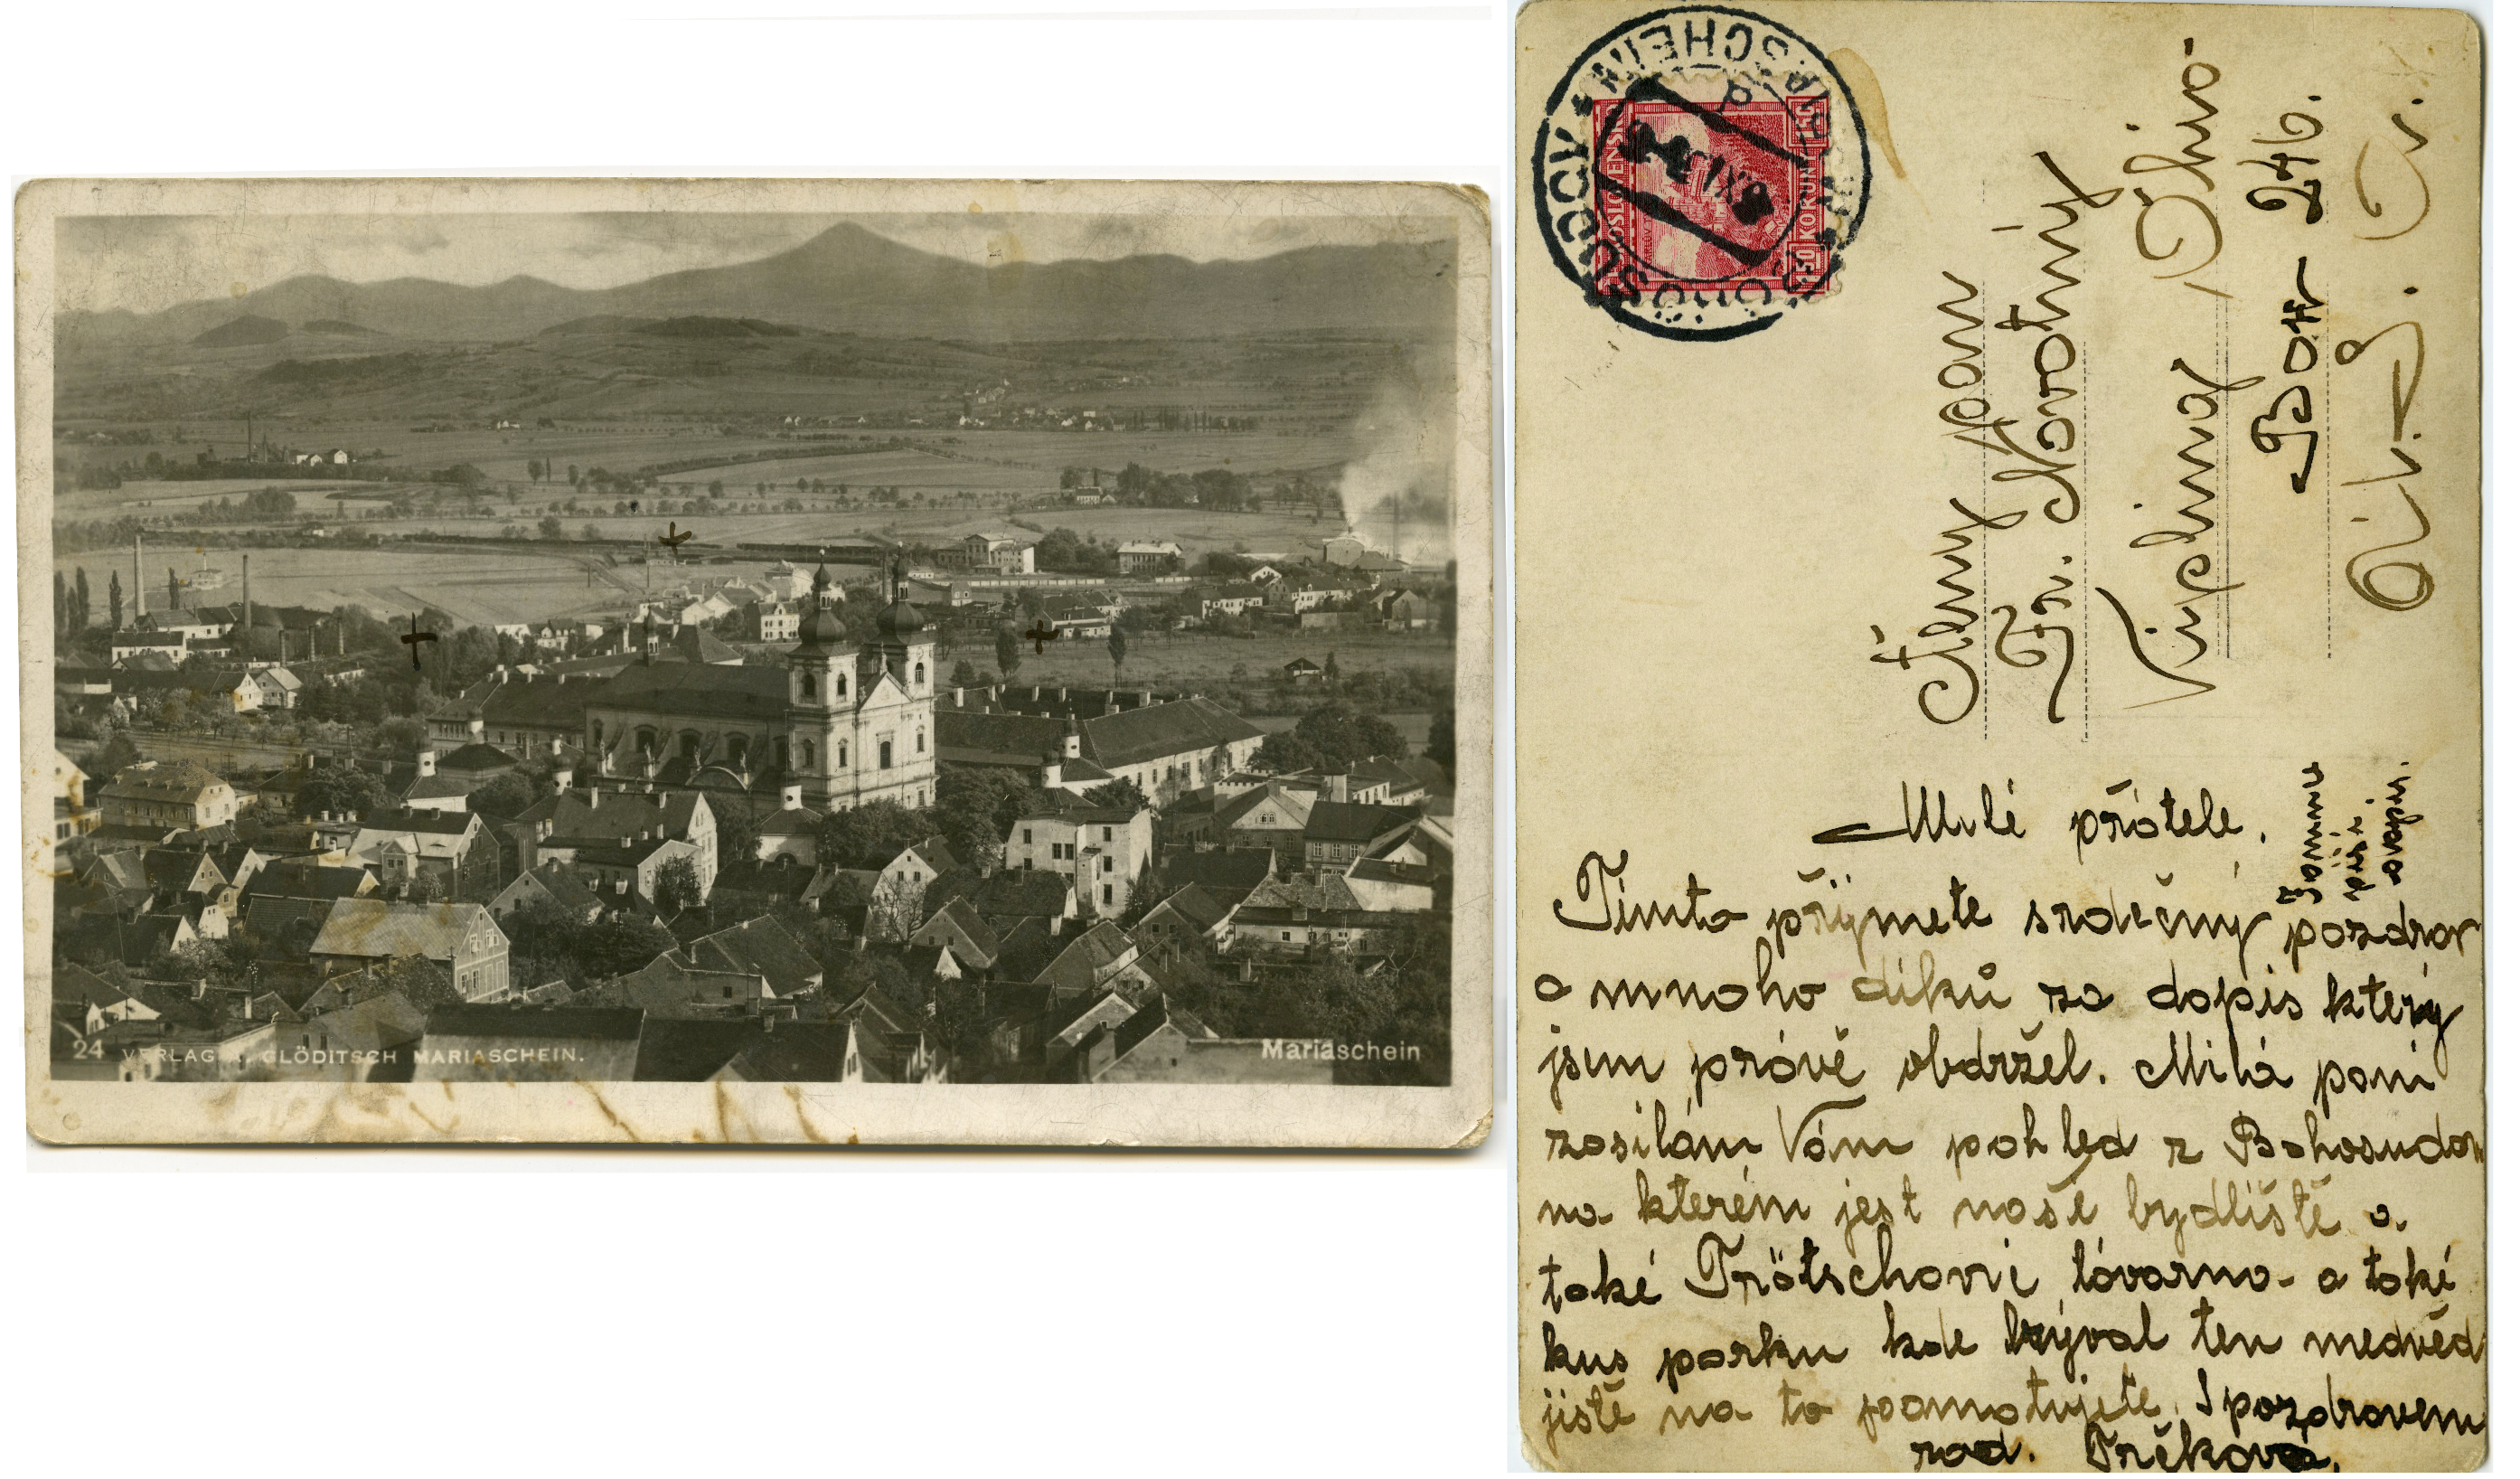 24 VERLAG A. GLÖDITSCH MARIASCHEIN.
Mariaschein
BOHOSUDOV
MARIASCHEIN
ČESKOSLOVENSKO
KORUNY
Ctěný pan
Fr. Novotný
Ohio
Box 246.
Milé přátele.
Tímto přijmete srdečný pozdrav
a mnoho díků za dopis který
jsem právě obdržel. Milá paní
zasílám Vám pohled z Bohosudova
na kterém jest naše bydliště a
také Trötschovic továrna a také
kus parku kde býval ten medvěd
jistě na to pamatujete. S pozdravem
rod. Trčkova.
psíti